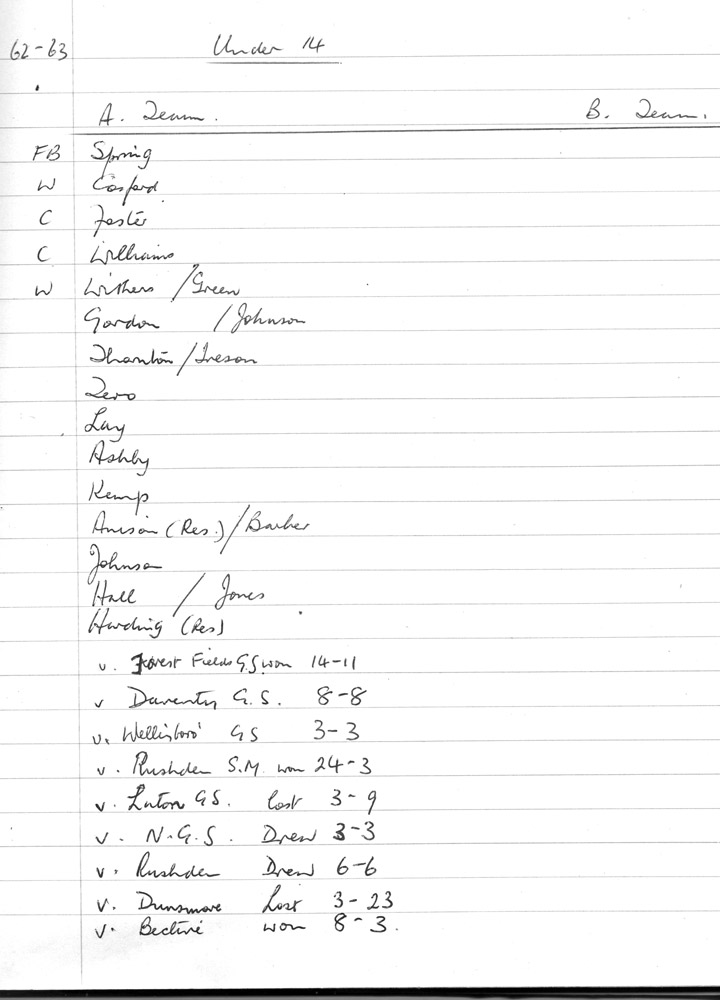 62-63 Under 14
A. Team. B. Team.
FB Spring
W Cosford
C Foster
C Williams
W Withers / Green
Gordon / Johnson
Thornton / Ireson
Zero
Lay
Ashby
Kemp
(Res.) / Barker
Johnson
Hall / Jones
Harding (Res)
v. Forest Fields GS won 14-11
v Daventry G.S. 8-8
v. Wellisboro' GS 3-3
v. Rushden S.M. won 24-3
v. Luton GS. lost 3-9
v. N.G.S. Drew 3-3
v. Rushden Drew 6-6
v. Dunsmore Lost 3-23
v. Bective won 8-3.